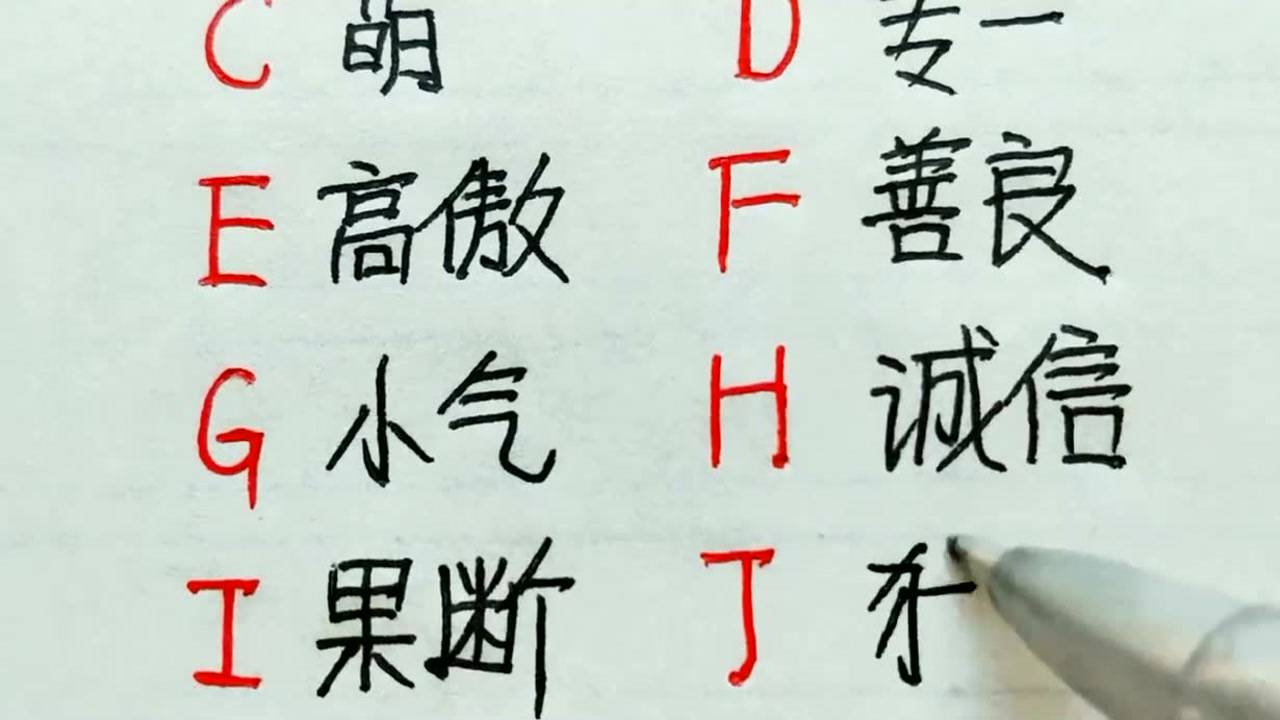 C 萌 D 专一
E 高傲 F 善良
G 小气 H 诚信
I 果断 J